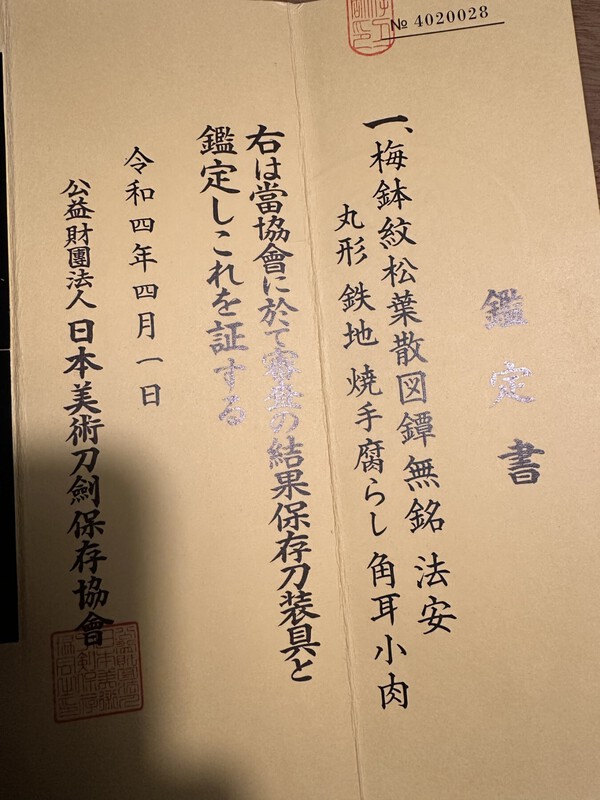 № 4020028
鑑定書
一、梅鉢紋松葉散図鐔 無銘 法安
丸形 鉄地 焼手腐らし 角耳小肉
右は當協會に於て審査の結果保存刀装具と
鑑定しこれを証する
令和四年四月一日
公益財團法人 日本美術刀劍保存協會